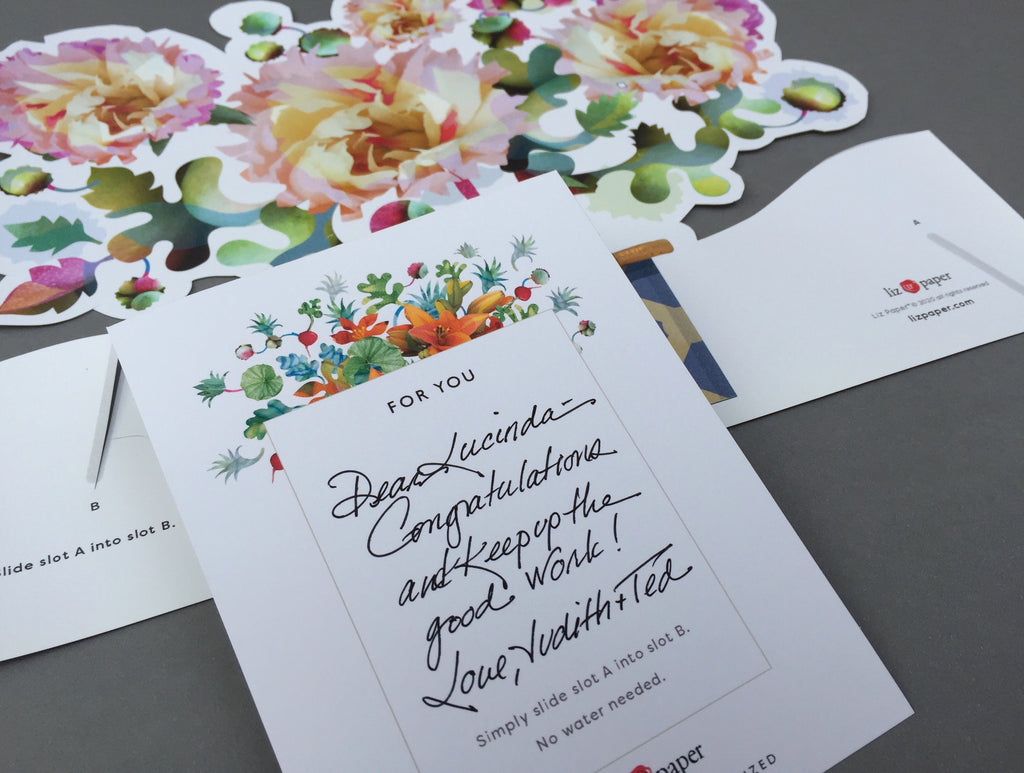 A
liz paper
Liz Paper® © 2020 all rights reserved
lizpaper.com
FOR YOU
Dear Lucinda-
Congratulations
and Keep up the
good work!
Love, Judith + Ted
Simply slide slot A into slot B.
No water needed.
paper
B
slide slot A into slot B.